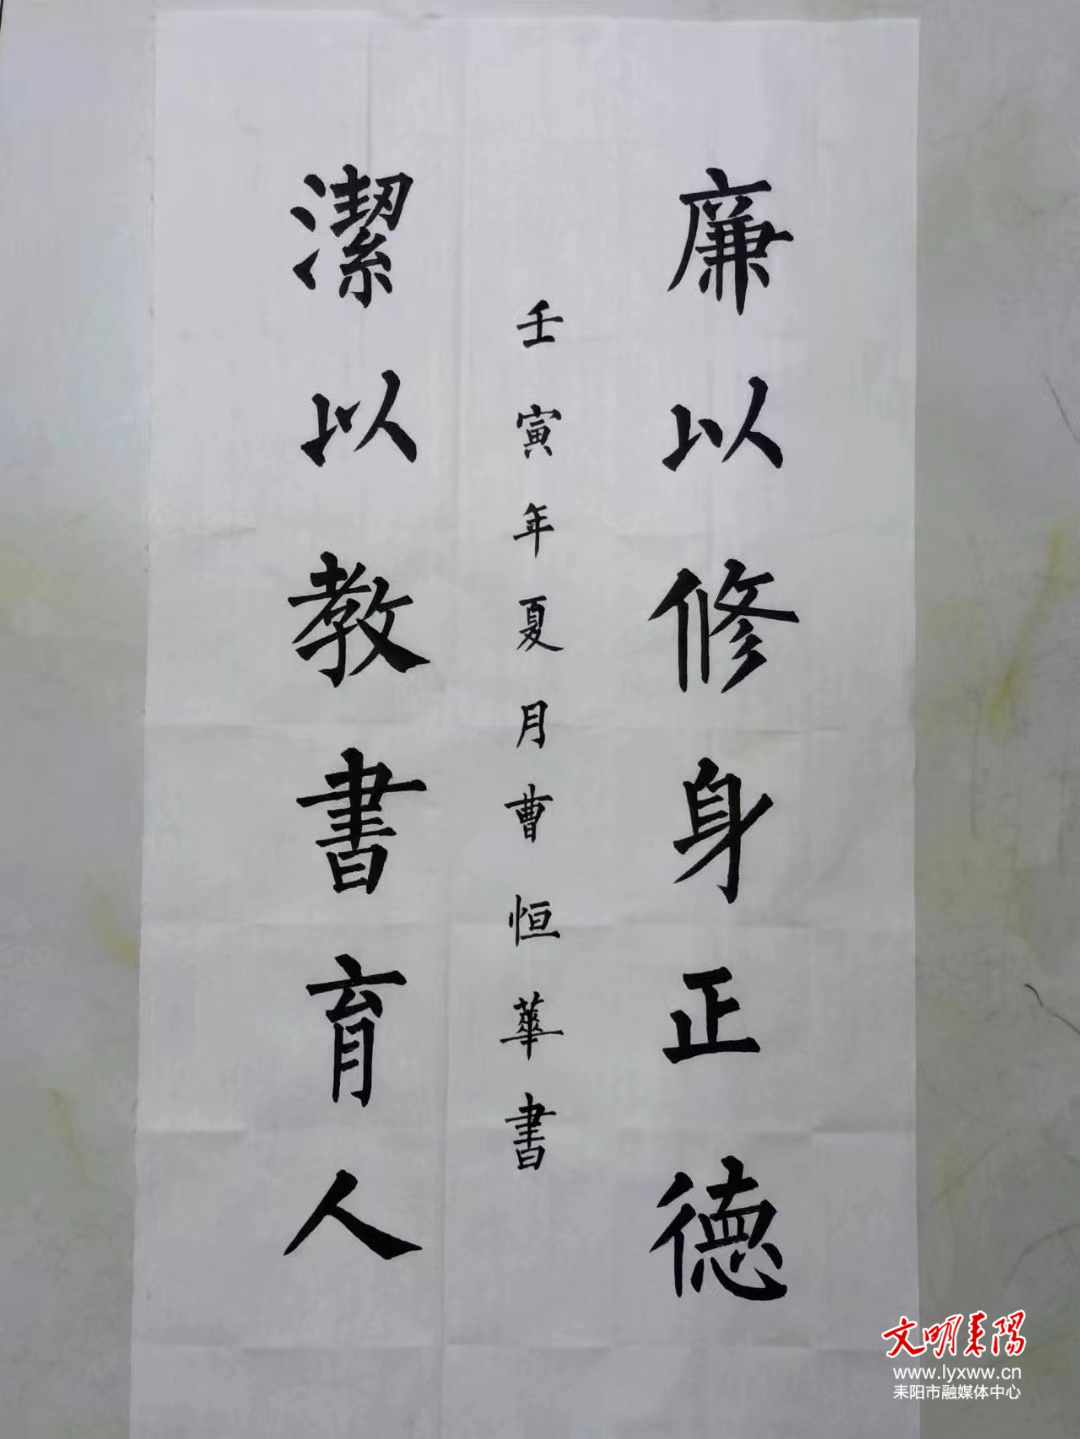 廉以修身正德
壬寅年夏月曹恒華書
潔以教書育人
文明耒陽
www.lyxww.cn
耒阳市融媒体中心